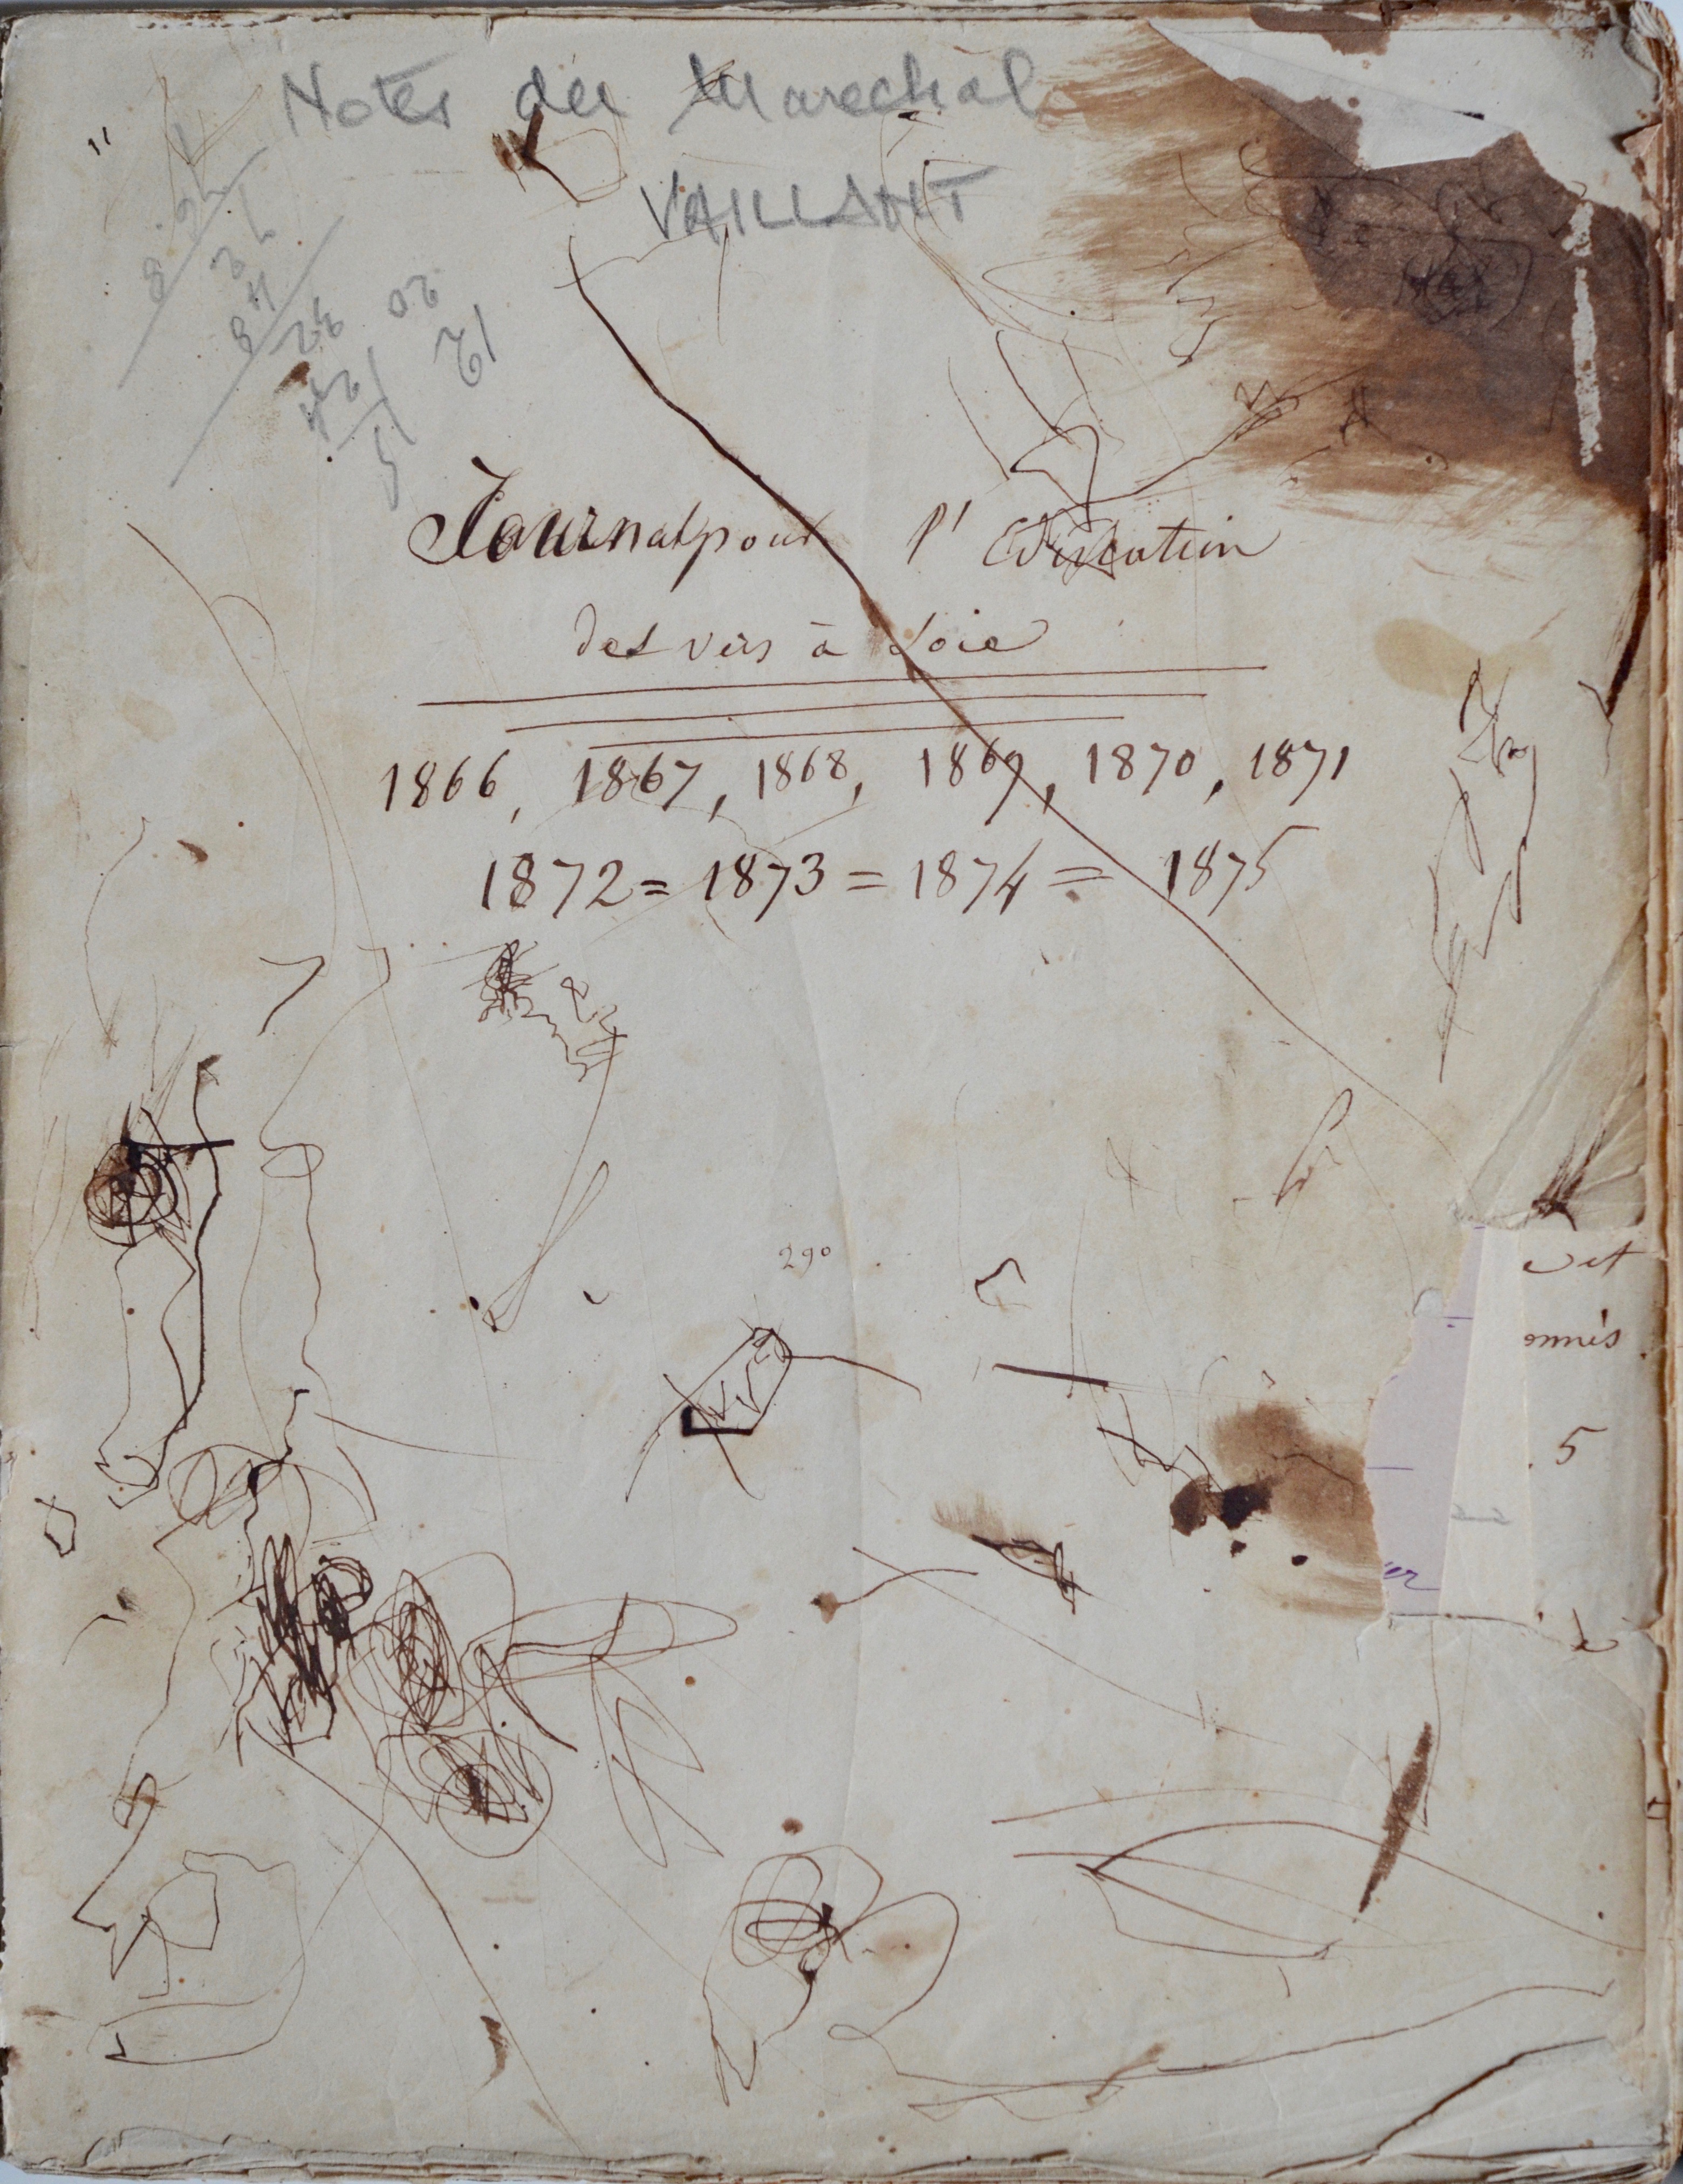 Notes du Marechal
VAILLANT
20
12
Journal pour l' Education
des vers à Soie
1866, 1867, 1868, 1869, 1870, 1871
1872 = 1873 = 1874 = 1875
290
et
onnés
5
er